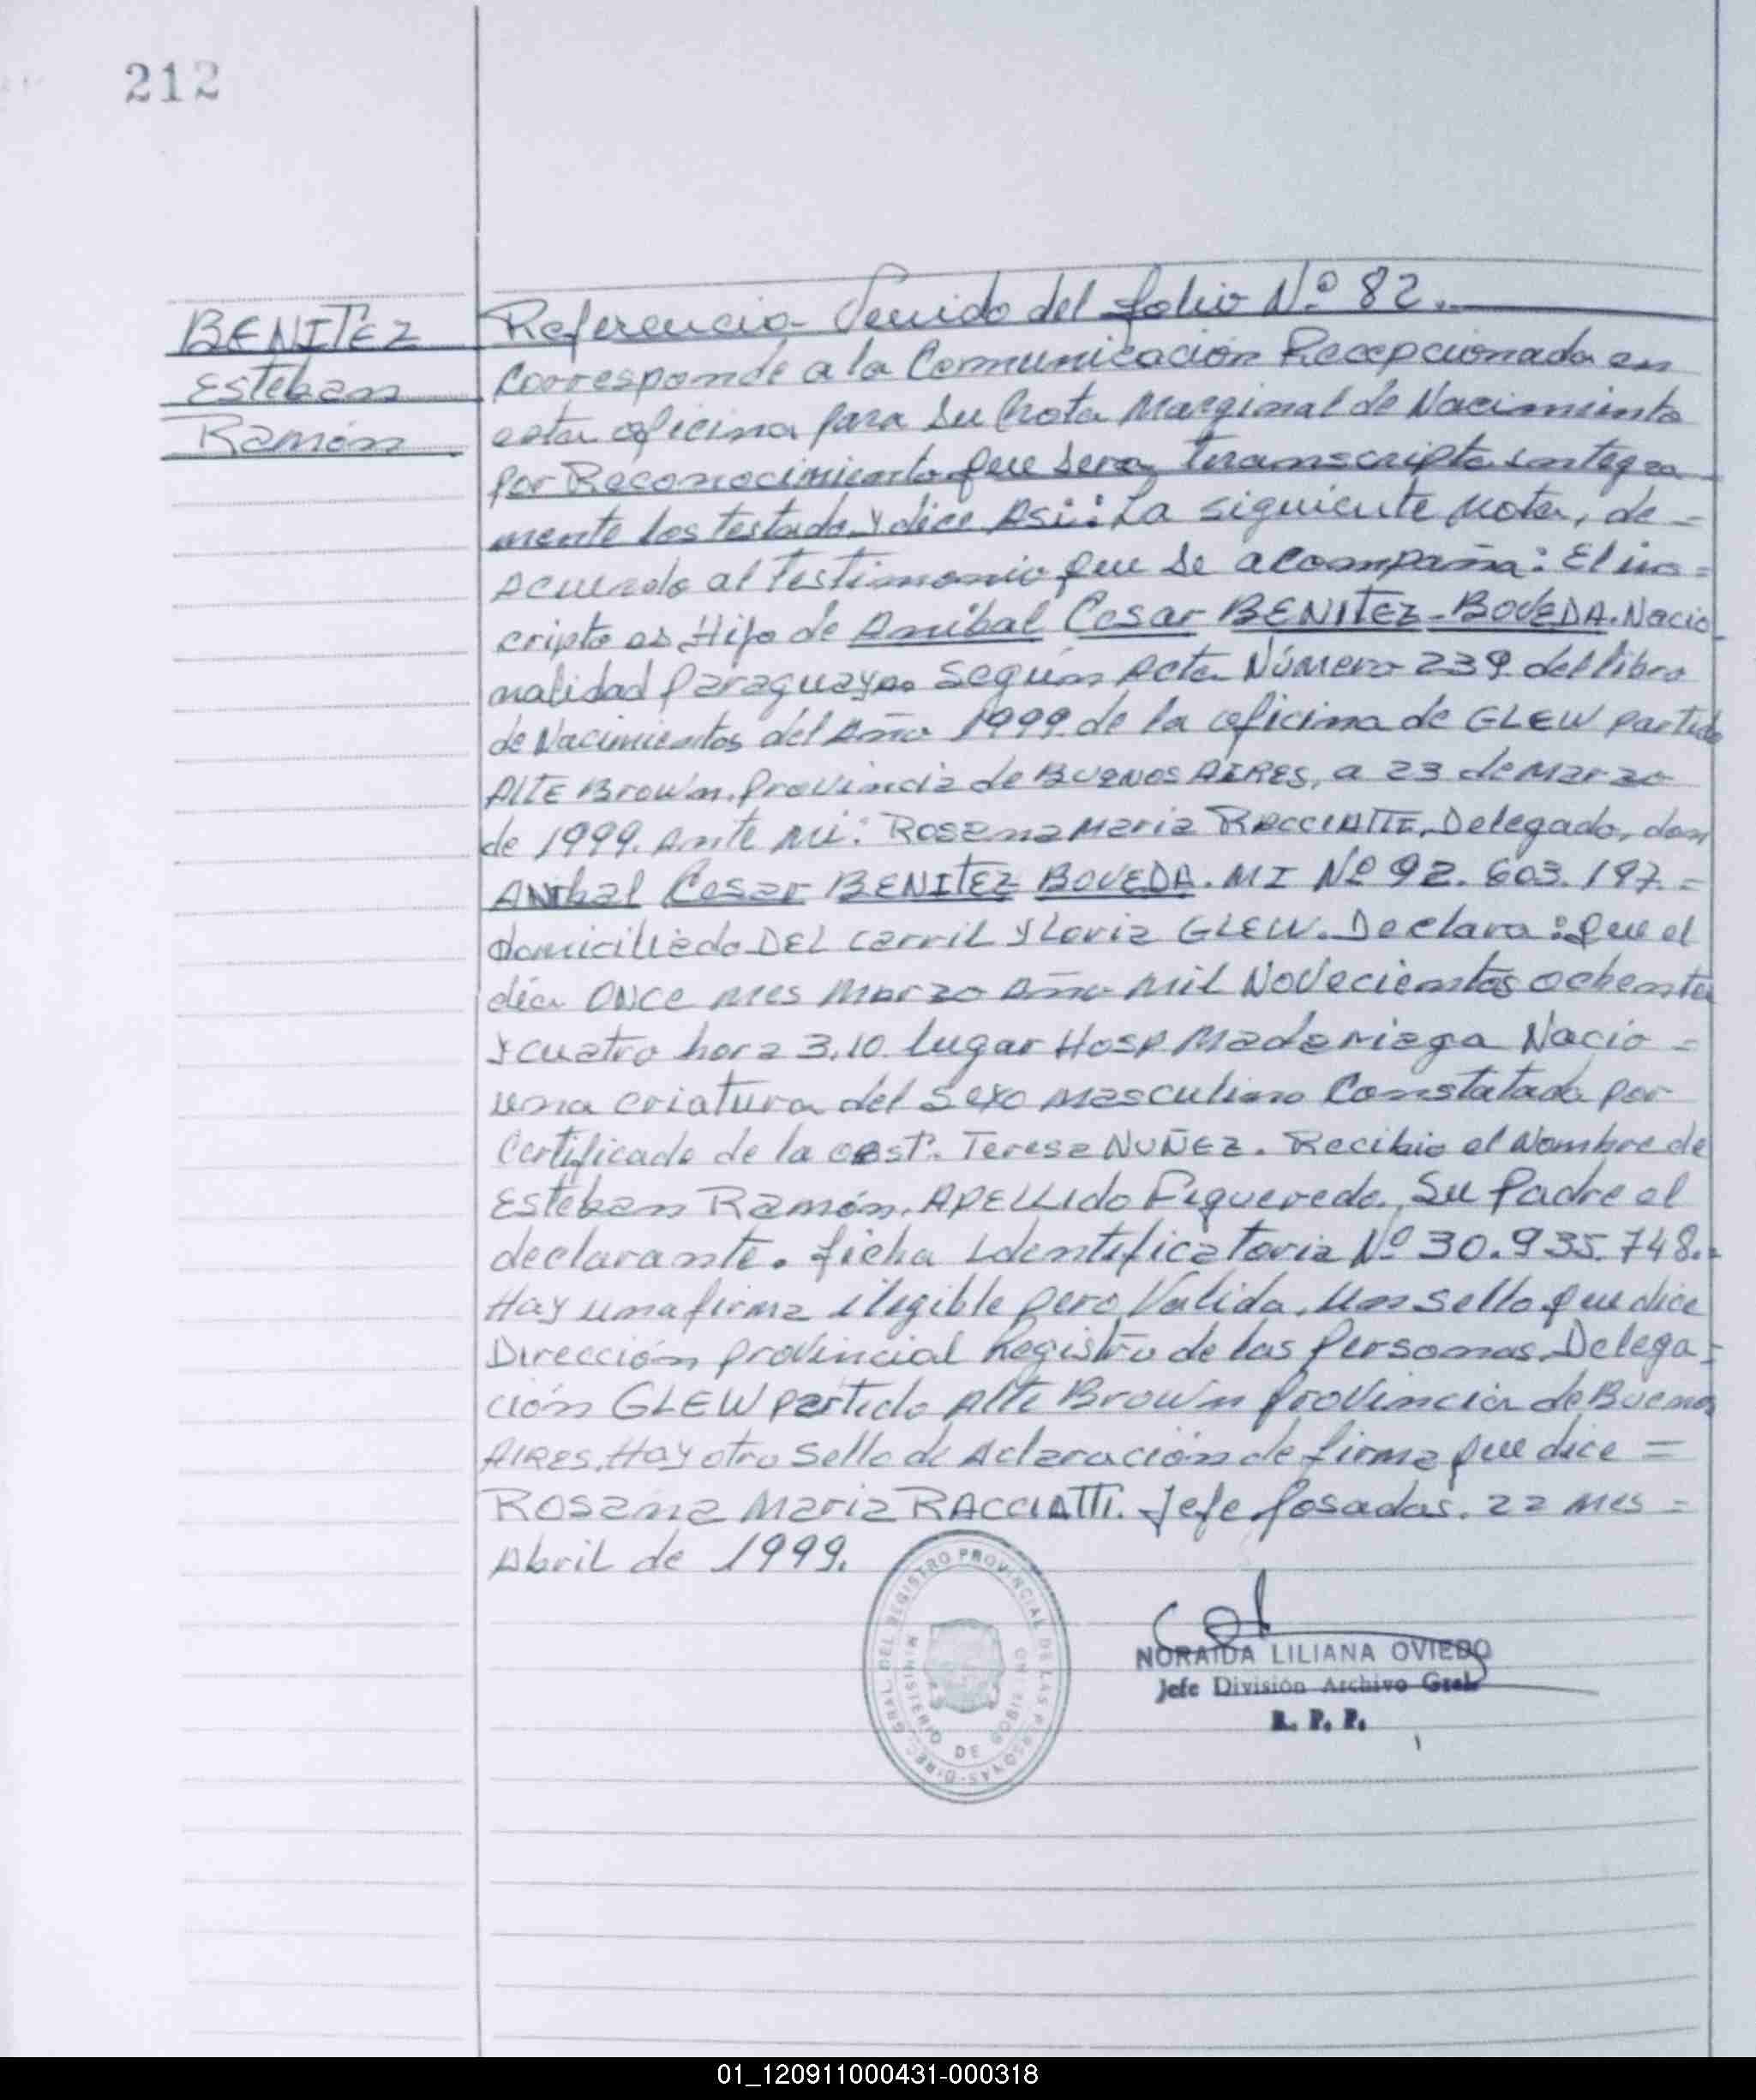 212
BENITEZ
Esteban
Ramón
Referencia Venido del folio Nº 82.
Corresponde a la Comunicación Recepcionada en
esta oficina para su Nota Marginal de Nacimiento
por Reconocimiento que sera transcripto integra
mente los testado y dice Asi: La siguiente nota, de =
Acuerdo al testimonio que se acompaña: El ins =
cripto es Hijo de Anibal Cesar BENITEZ-BOVEDA. Nacio
nalidad Paraguaya. Según Acta Número 239 del libro
de Nacimientos del Año 1999 de la oficina de GLEW partido
AlTE Brown. Provincia de BUENOS AIRES, a 23 de Marzo
de 1999. Ante Mi: Rosana Maria RACCIATTI, Delegado, don
ANIbal Cesar BENITEZ BOVEDA. MI Nº 92.603.197. =
domiciliado DEL carril y Loria GLEW. Declara: que el
dia ONCE mes Marzo Año Mil Novecientos ochenta
y cuatro hora 3.10 lugar Hosp. Madariaga Nacio =
una criatura del Sexo Masculino Constatada por
Certificado de la obst. Teresa NUÑEZ. Recibio el Nombre de
Esteban Ramón. APELLido Figueredo. Su Padre el
declarante. ficha Identificatoria Nº 30.935.748.=
Hay una firma ilegible pero Valida. Un sello que dice
Dirección Provincial Registro de las Personas. Delega =
ción GLEW partido Alte Brown Provincia de Buenos
AIRES. Hay otro Sello de Aclaración de firma que dice =
ROSana Maria RACCIATTI. Jefe Posadas. 22 mes =
Abril de 1999.
DIREC. GRAL. DEL REGISTRO PROVINCIAL DE LAS PERSONAS
MINISTERIO DE GOBIERNO
NORAIDA LILIANA OVIEDO
Jefe División Archivo Gral.
R. P. P.
01_120911000431-000318